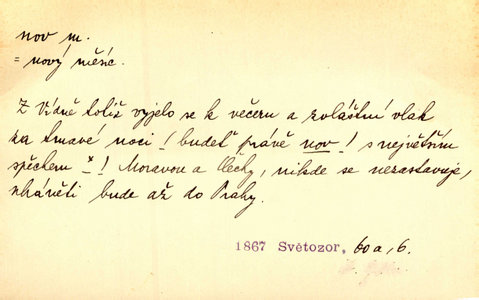 nov m.
= nový měsíc.
Z Vídně totiž vyjelo se k večeru a zvláštní vlak
za tmavé noci ! budeť právě nov ! s největším
spěchem x ! Moravou a Čechy, nikde se nezastavuje,
uháněti bude až do Prahy.
1867 Světozor, 60a, 6.